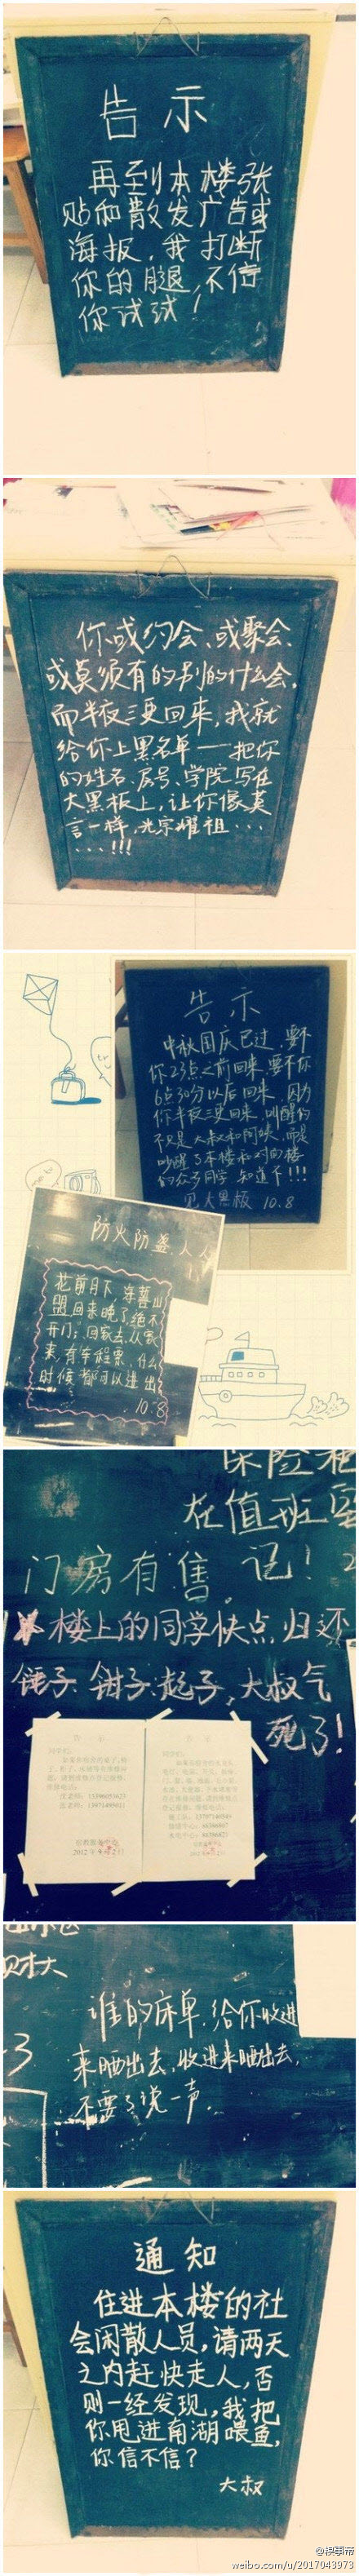 告示
再到本楼张
贴和散发广告或
海报，我打断
你的腿，不信
你试试！
你或约会、或聚会、
或莫须有的别的什么会，
而半夜三更回来，我就
给你上黑名单——把你
的姓名、房号、学院写在
大黑板上，让你像莫
言一样，光宗耀祖...
...!!!
告示
中秋国庆已过，要不
你23点之前回来，要不你
6点30分以后回来，因为
你半夜三更回来，叫醒的
不仅是大叔和阿姨，而是
吵醒了本楼和对面楼
的众多同学，知道不!!!
见大黑板 10.8
防火防盗 人人
花前月下，海誓山
盟回来晚了，绝不
开门；回家去，从家
来，有车程票，什么
时候都可以进出
10.8
保险柜
在值班室
门房有售。
记！
楼上的同学快点归还
锤子、钳子、起子，大叔气
死了！
2012年9月2
谁的床单，给你收进
来晒出去，收进来晒出去，
不要了说一声。
通知
住进本楼的社
会闲散人员，请两天
之内赶快走人，否
则一经发现，我把
你甩进南湖喂鱼，
你信不信？
大叔
@糗事帝
weibo.com/u/2017043973